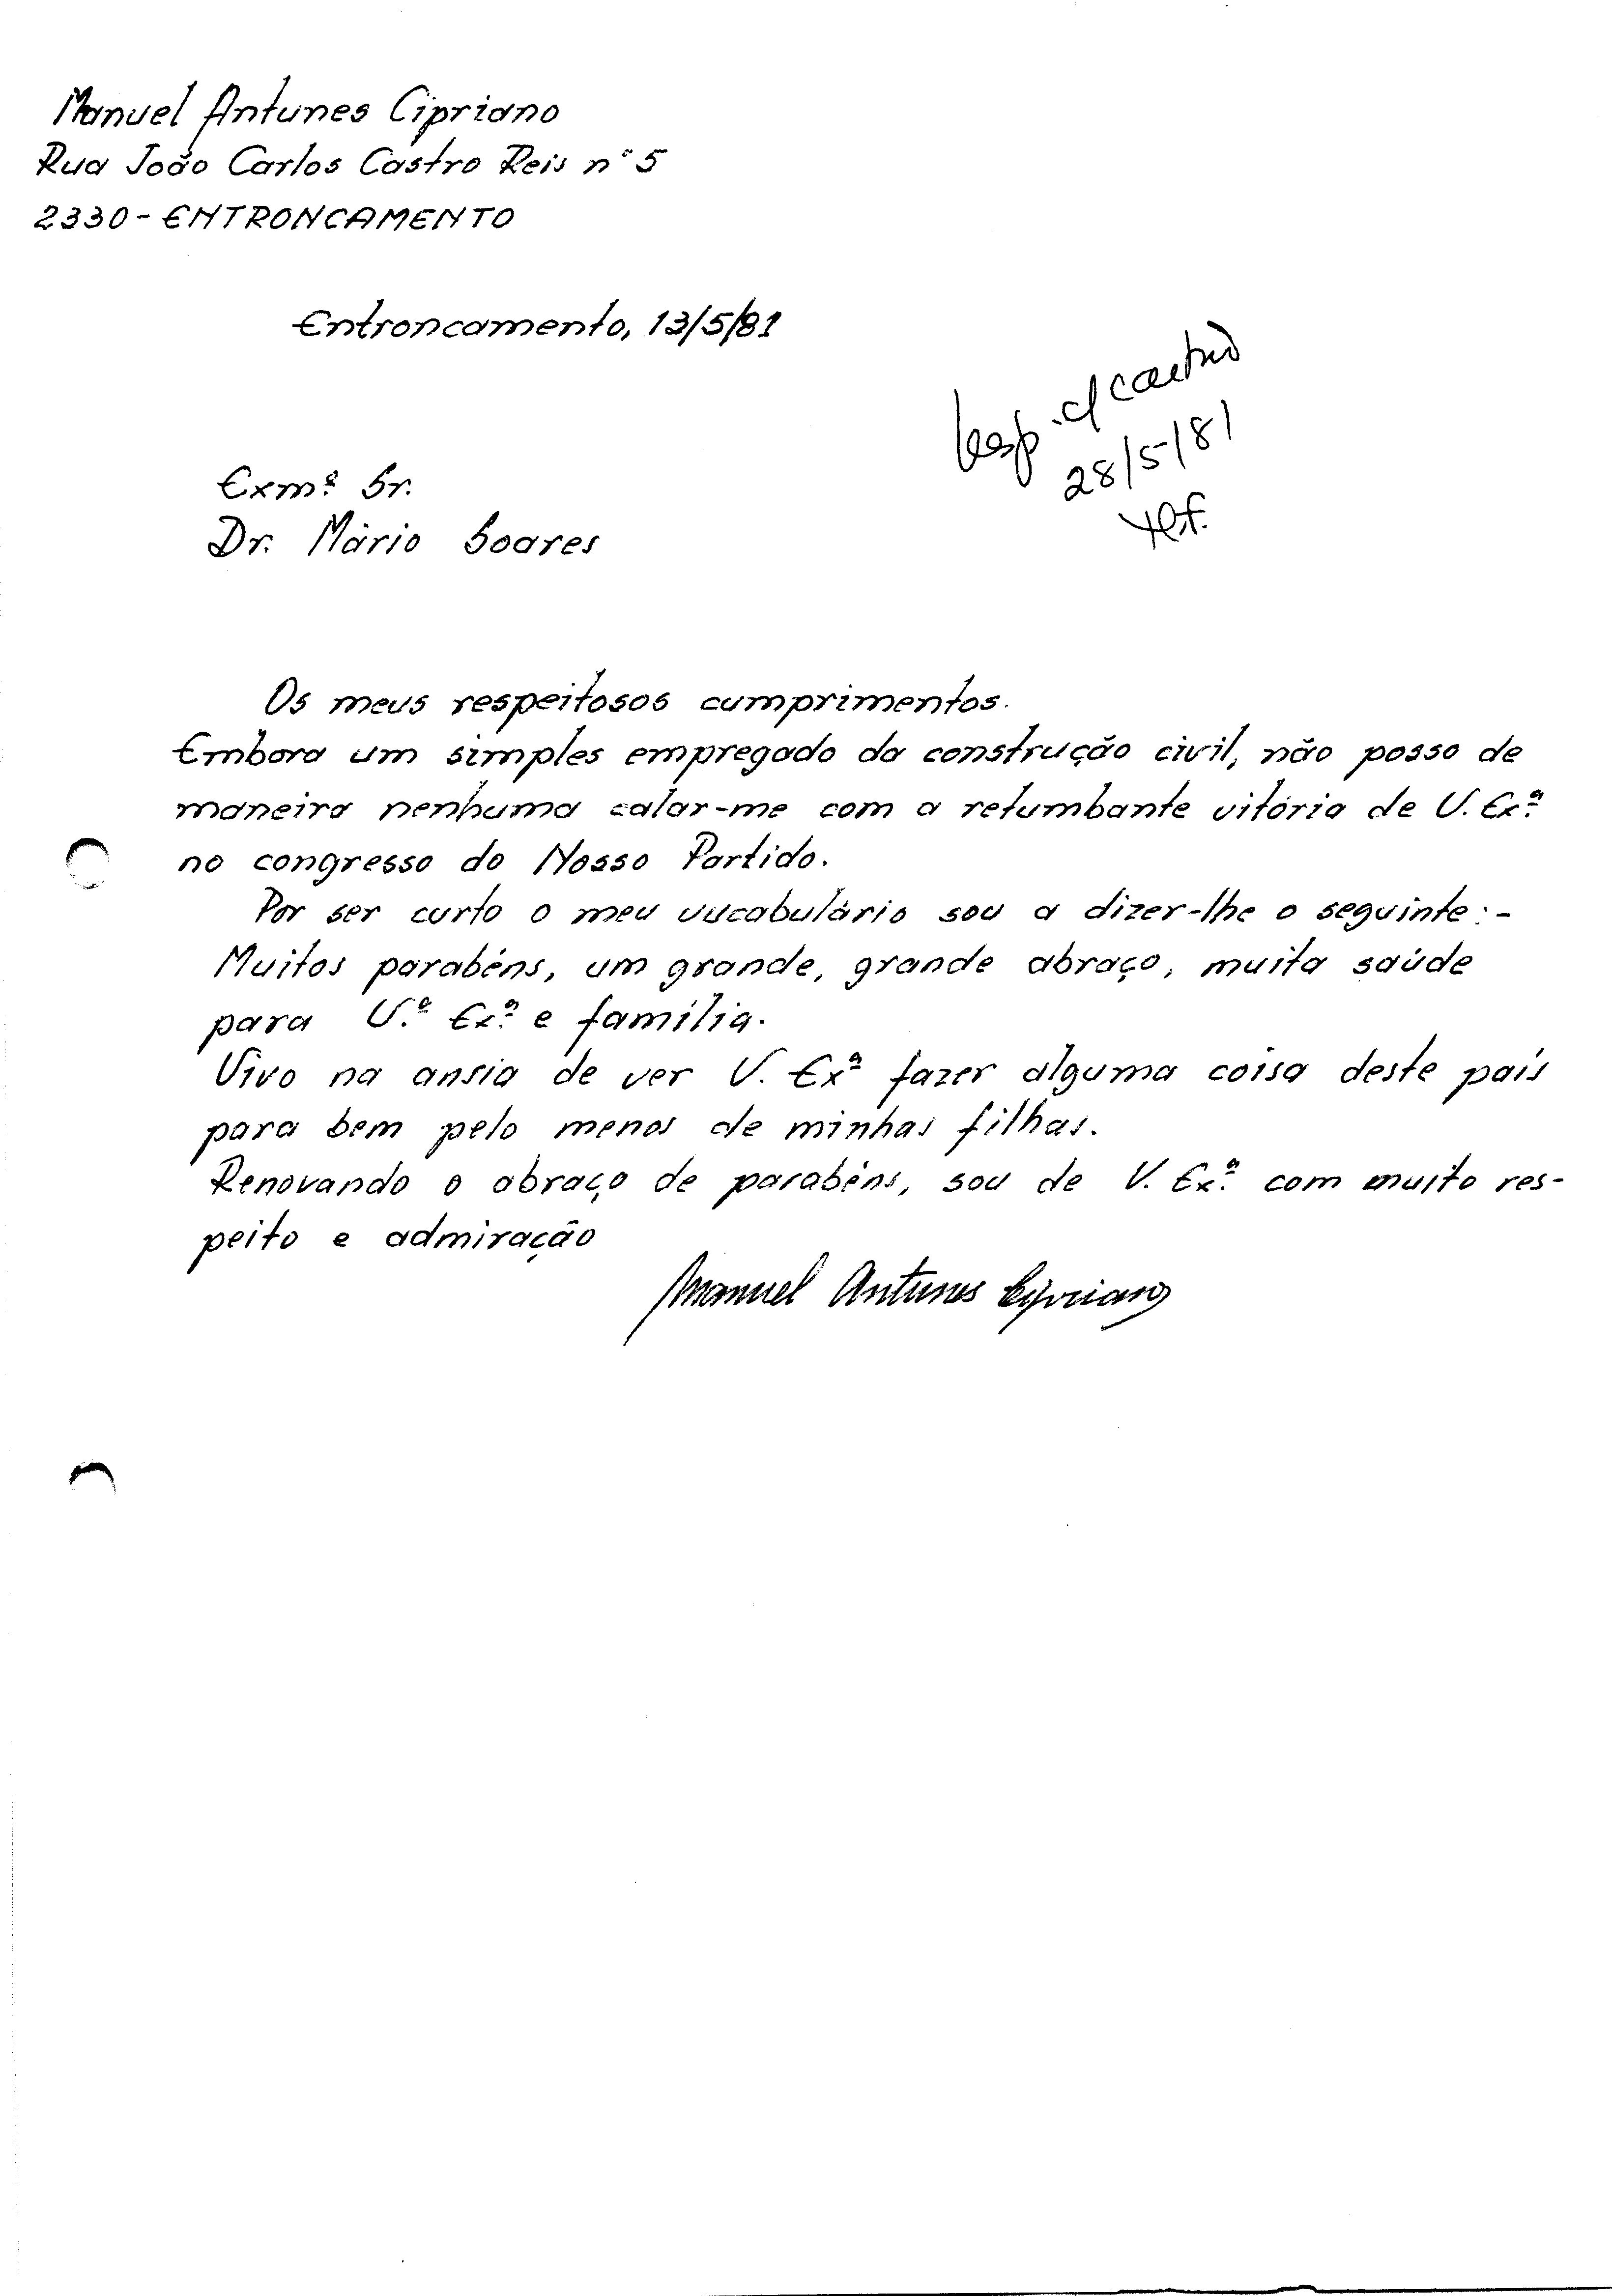 Manuel Antunes Cipriano
Rua João Carlos Castro Reis nº 5
2330 - ENTRONCAMENTO
Entroncamento, 13/5/81
Resp. c/ cartão
28/5/81
Exmº Sr.
Dr. Mário Soares
Os meus respeitosos cumprimentos.
Embora um simples empregado da construção civil, não posso de
maneira nenhuma calar-me com a retumbante vitória de V. Exª
no congresso do Nosso Partido.
Por ser curto o meu vucabulário sou a dizer-lhe o seguinte:-
Muitos parabéns, um grande, grande abraço, muita saúde
para V.ª Exª e família.
Vivo na ansia de ver V. Exª fazer alguma coisa deste país
para bem pelo menos de minhas filhas.
Renovando o abraço de parabéns, sou de V. Exª com muito res-
peito e admiração
Manuel Antunes Cipriano